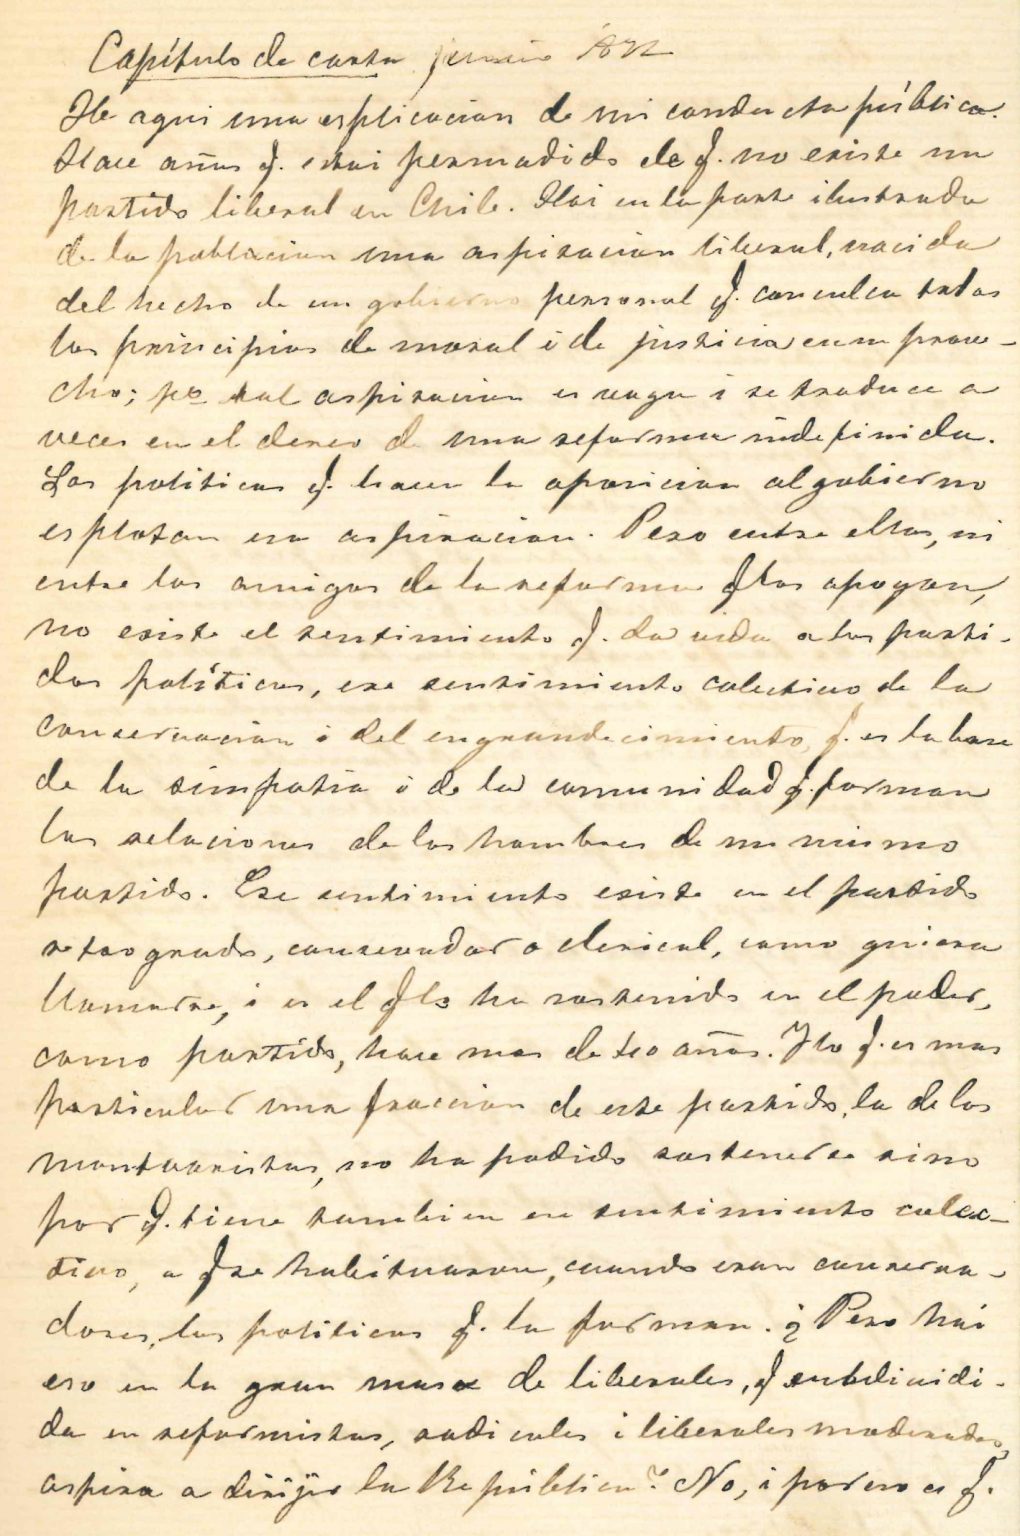 Capítulo de carta junio 872
He aqui una esplicacion de mi conducta pública.
Hace años q. estoi persuadido de q. no existe un
partido liberal en Chile. Hai en la parte ilustrada
de la poblacion una aspiracion liberal, nacida
del hecho de un gobierno personal q. conculca todos
los principios de moral i de justicia en su prove-
cho; po. tal aspiracion es vaga i se traduce a
veces en el deseo de una reforma indefinida.
Los politicos q. hacen la oposicion al gobierno
esplotan esa aspiracion. Pero entre ellos, ni
entre los amigos de la reforma q los apoyan,
no existe el sentimiento q. da vida a los parti-
dos políticos, ese sentimiento colectivo de la
conservacion i del engrandecimiento, q. es la base
de la simpatia i de la comunidad q. forman
las relaciones de los hombres de un mismo
partido. Ese sentimiento existe en el partido
retrogrado, conservador o clerical, como quiera
llamarse, i es el q lo ha sostenido en el poder,
como partido, hace mas de 40 años. I lo q. es mas
particular una fraccion de este partido, la de los
montvaristas, no ha podido sostenerse sino
por q. tiene tambien ese sentimiento colec-
tivo, a q se habituaron, cuando eran conserva-
dores, los politicos q. la forman. ¿Pero hai
eso en la gran masa de liberales, q subdividi-
da en reformistas, radicales i liberales moderados,
aspira a dirijir la República? No, i por eso es q.